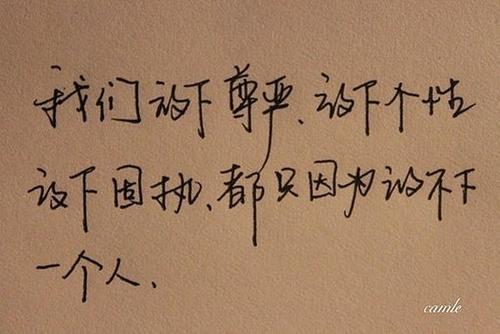 我们放下尊严、放下个性
放下固执、都只因为放不下
一个人、
camle